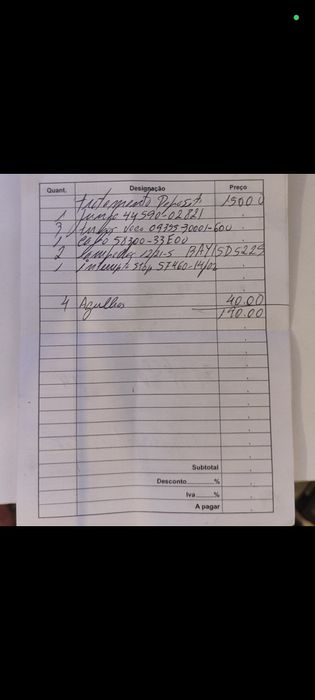 Quant. Designação Preço
Tratamento Deposito 150.00
1 44590-02821
3 09355-70001-600
1 Cabo 58300-33E00
2 Lampadas 12/21-5 BAY15D 5225
1 interrupt Stop 57460-14/02
4 Agulhas 40.00
190.00
Subtotal
Desconto %
Iva %
A pagar